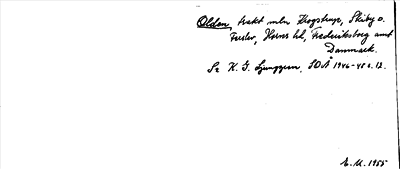 Olden, trakt mln Krogstrup, Skiby o.
Ferslev, Horns hd, Frederiksborg amt
Danmark.
Se K. G. Ljunggren, SOÅ 1946-48 s. 12.
E.M. 1955